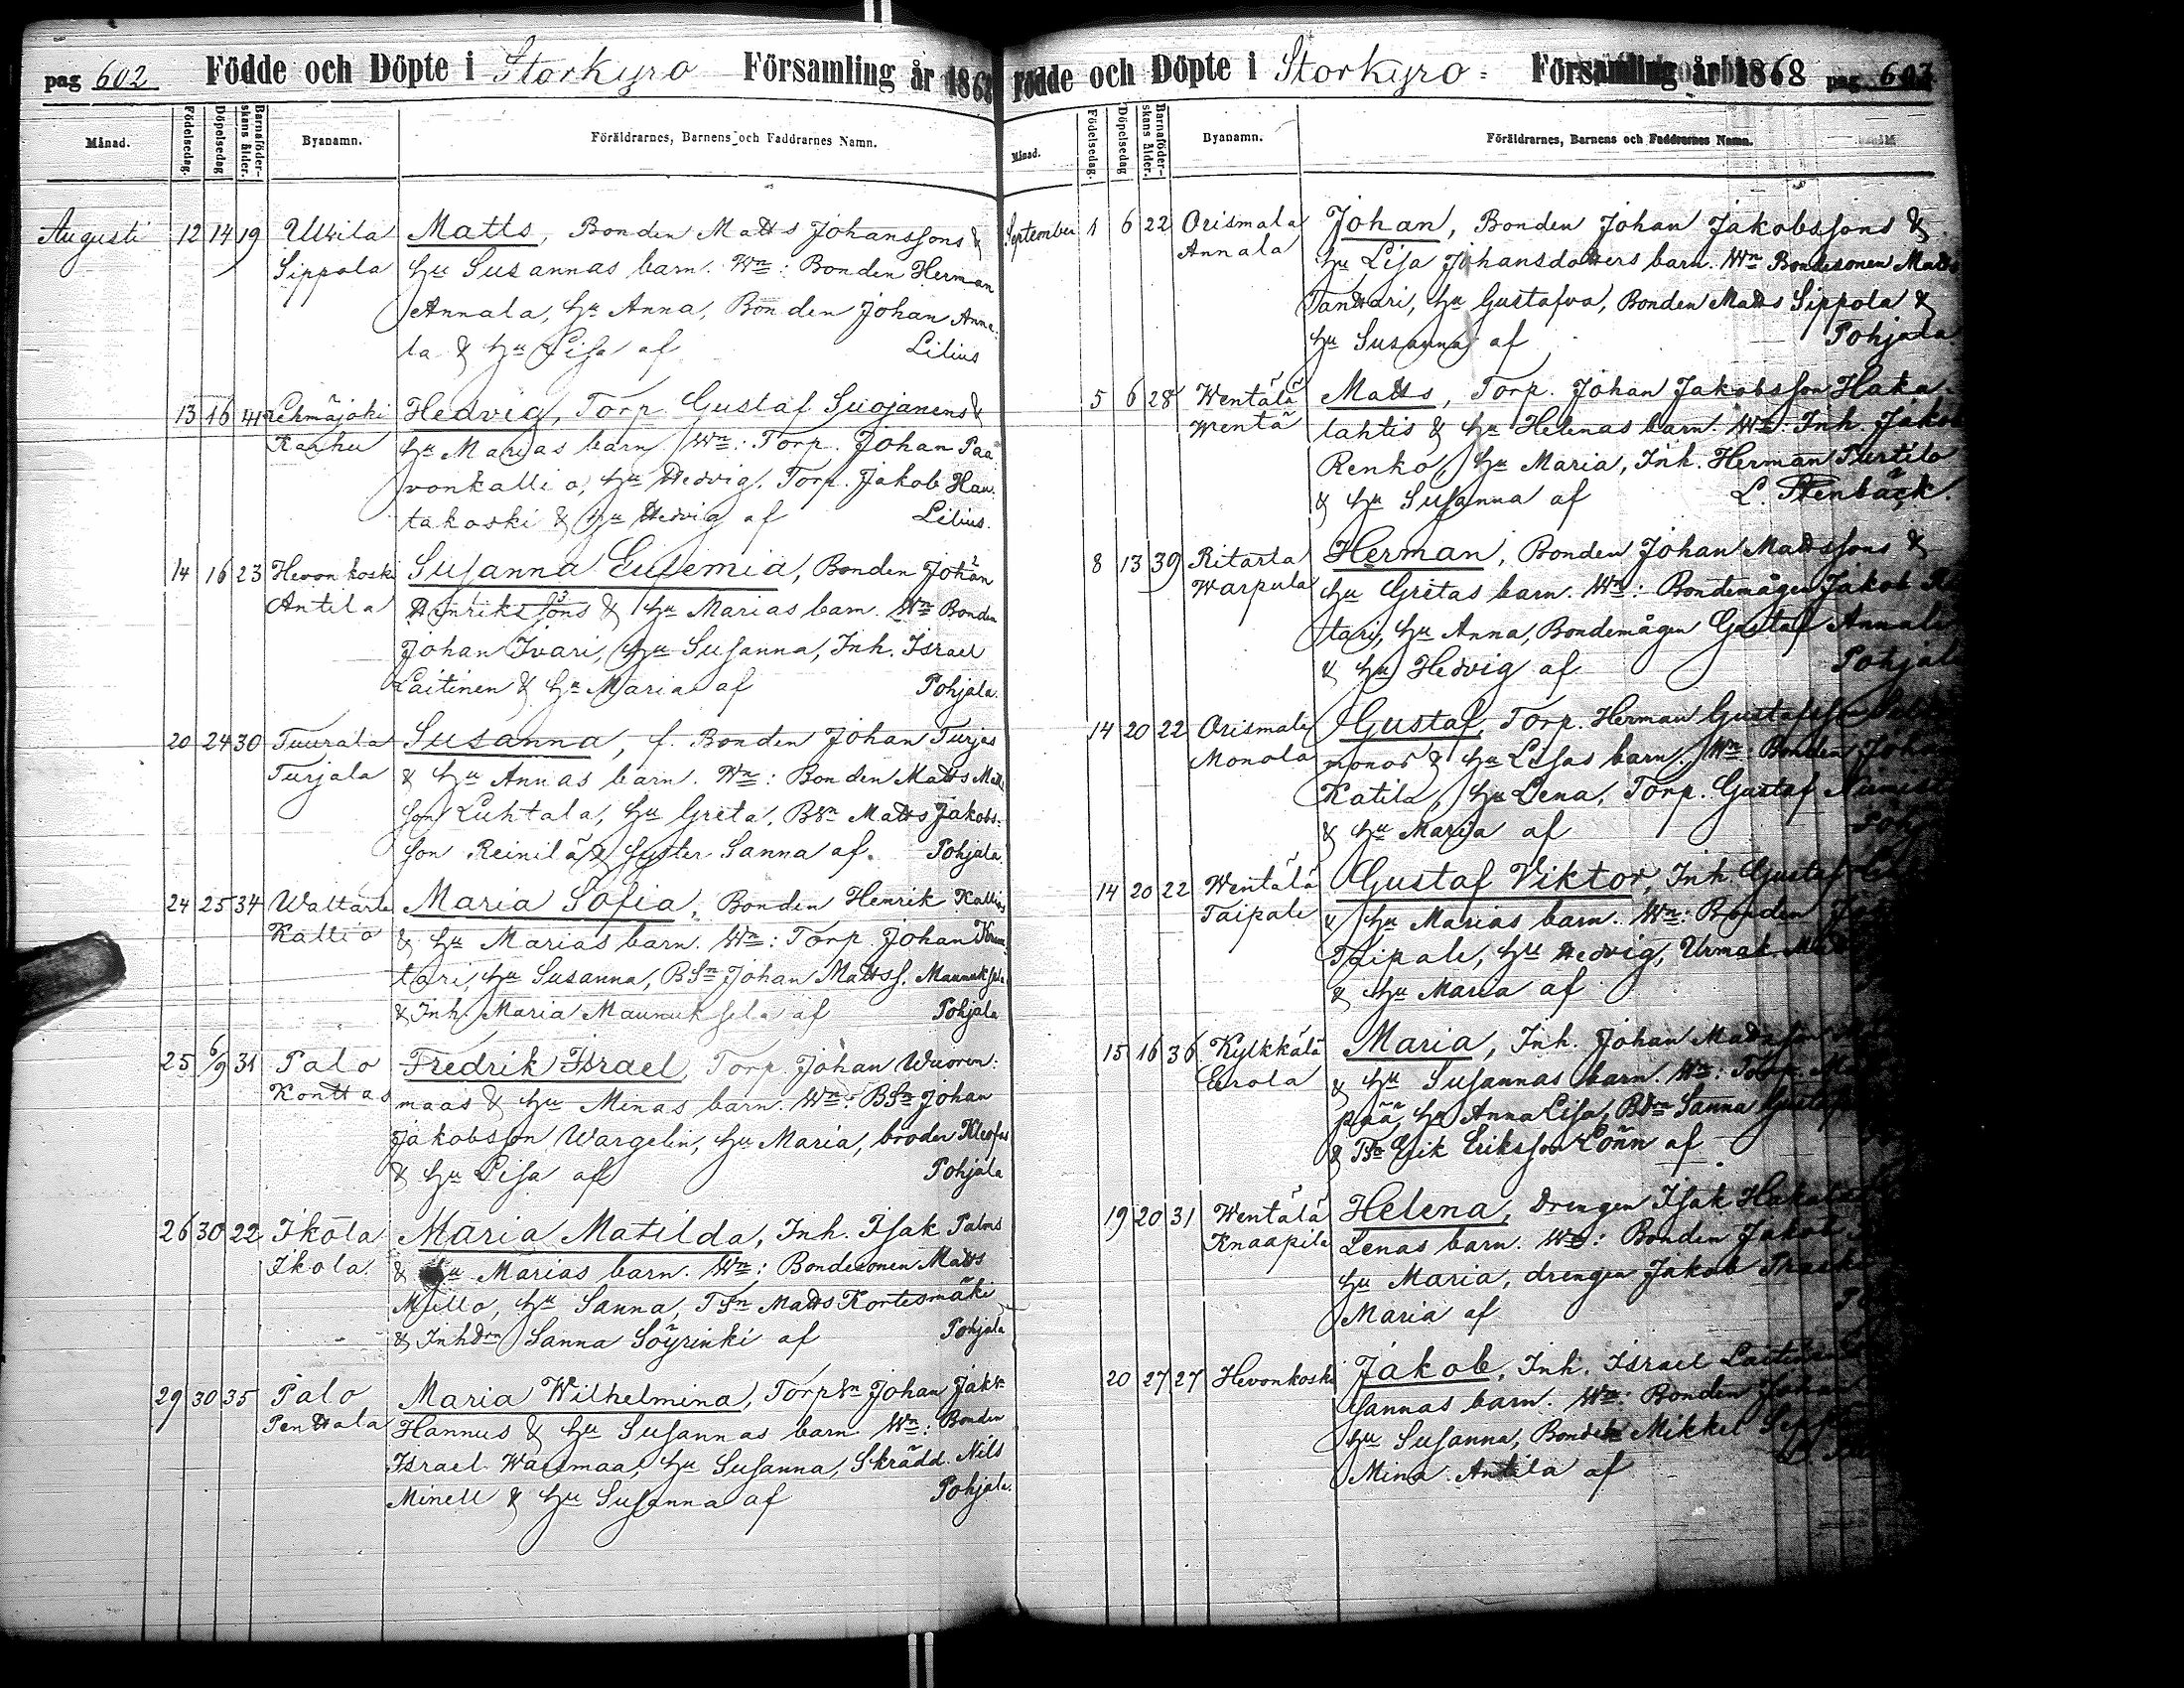 pag 602 Födde och Döpte i Storkyro Församling år 186
Månad. Födelsedag. Döpelsedag Barnaföderskans ålder. Byanamn. Föräldrarnes, Barnens och Faddrarnes Namn.
Augusti 12 14 19 Ullvila Matts, Bonden Matts Johanssons &
Sippola hu Susannas barn. Wn: Bonden Herman
Annala, hu Anna, Bonden Johan Anna-
la & hu Lisa af Lilius
13 16 41 Lehmäjoki Hedvig, Torp. Gustaf Suojanens &
Karhu hu Marias barn. Wn: Torp. Johan Paa-
vonkallio, hu Hedvig, Torp. Jakob Hau-
takoski & hu Hedvig af Lilius.
14 16 23 Hevonkoski Susanna Eufemia, Bonden Johan
Antila Henrikssons & hu Marias barn. Wn Bonden
Johan Ivari, hu Susanna, Inh. Israel
Laitinen & hu Maria af Pohjala.
20 24 30 Tuurala Susanna, f. Bonden Johan Turjas
Turjala & hu Annas barn. Wn: Bonden Matts Matts
son Luhtala, hu Greta, Bdn Matts Jakobs-
son Reinilä & syster Sanna af. Pohjala.
24 25 34 Waltarla Maria Sofia, Bonden Henrik Kallios
Kallio & hu Marias barn. Wn: Torp. Johan
tari, hu Susanna, BSn Johan Mattss. Maunuksela
& Inh. Maria Maunuksela af Pohjala
25 6/9 31 Palo Fredrik Israel, Torp. Johan Wuoren-
Konttas maas & hu Minas barn. Wn: BSn Johan
Jakobsson Wargelin, hu Maria, broder Kleofas
& hu Lisa af Pohjala
26 30 22 Ikola Maria Matilda, Inh. Isak Palms
Ikola. & hu Marias barn. Wn: Bondesonen Matts
Myllo, hu Sanna, TSn Matts Kortesmäki
& Inhdrn Sanna Söyrinki af Pohjala
29 30 35 Palo Maria Wilhelmina, Torpsn Johan Jaks.
Penttala Hannus & hu Susannas barn Wn: Bonden
Israel Wainmaa, hu Susanna, Skrädd. Nils
Minell & hu Susanna af Pohjala.
Födde och Döpte i Storkyro Församling år 1868 pag 603
Månad. Födelsedag. Döpelsedag Barnaföderskans ålder. Byanamn. Föräldrarnes, Barnens och Faddrarnes Namn.
September 1 6 22 Orismala Johan, Bonden Johan Jakobssons &
Annala hu Lisa Johansdotters barn. Wn Bondesonen Matts
Tanttari, hu Gustafva, Bonden Matts Sippola &
hu Susanna af Pohjala
5 6 28 Wentälä Matts, Torp. Johan Jakobsson Haka-
Wentä lahtis & hu Helenas barn. Wn: Inh. Jakob
Renko, hu Maria, Inh. Herman Perttilo
& hu Susanna af L. Stenbäck.
8 13 39 Ritarla Herman, Bonden Johan Mattssons &
Warpula hu Gretas barn. Wn: Bondemågen Jakob Ri
tari, hu Anna, Bondemågen Gustaf Annala
& hu Hedvig af Pohjala
14 20 22 Orismala Gustaf, Torp. Herman Gustafsson
Monola monos & hu Lisas barn. Wn Bonden Johan
Katila, hu Lena, Torp. Gustaf
& hu Maria af Pohj
14 20 22 Wentälä Gustaf Viktor, Inh. Gustaf
Taipale & hu Marias barn. Wn: Bonden
Taipale, hu Hedvig, Urmak.
& hu Maria af
15 16 36 Kylkkälä Maria, Inh. Johan Mattsson
Erola & hu Susannas barn. Wn: Torp.
pää, hu Anna Lisa, Bdrn Sanna Gustafs
& TSn Erik Eriksson Lönn af
19 20 31 Wentälä Helena, Drengen Isak Hakala
Knaapila Lenas barn. Wn: Bonden Jakob
hu Maria, drengen Jakob
Maria af
20 27 27 Hevonkoski Jakob, Inh. Israel Laitinen
sannas barn. Wn: Bonden Johan
hu Susanna, Bonden Mikkel
Mina Antila af